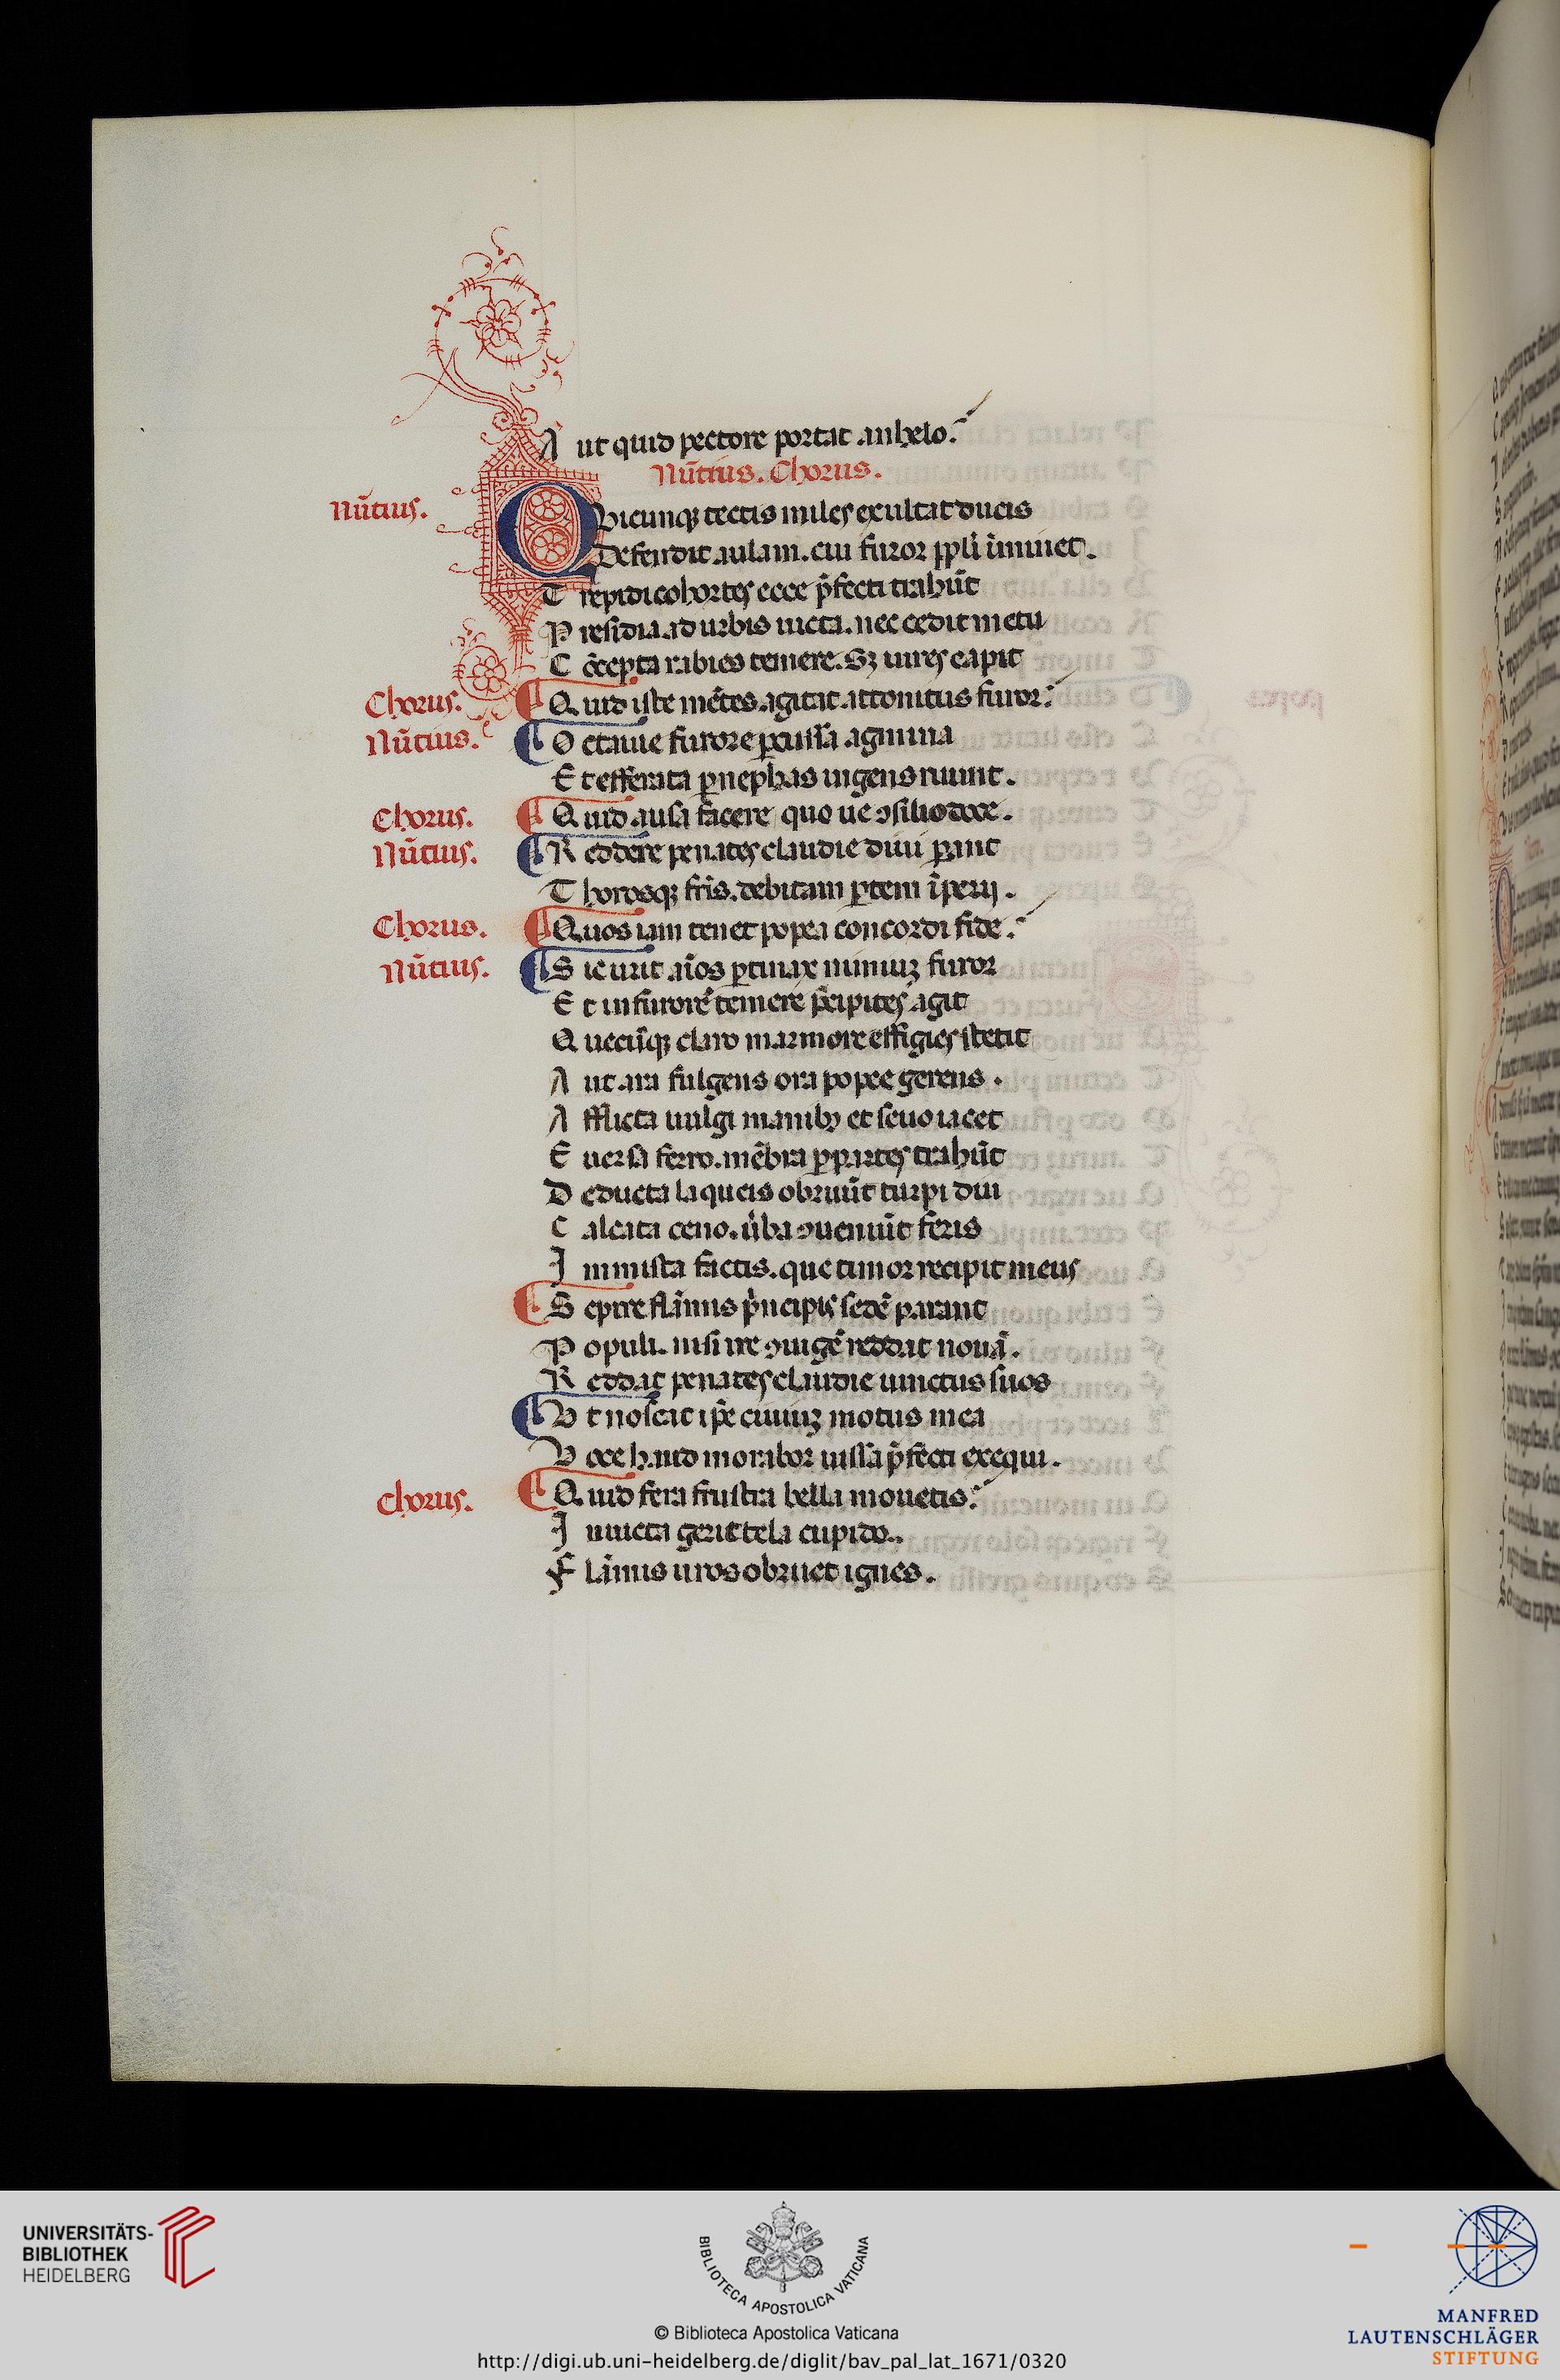 A ut quid pectore portat anhelo.
Nūtius. Chorus.
Nūtius. Q vicunq; tectis miles exultat ducis
Defendit aulam. cui furor ppli īminet.
T repidi cohortes ecce p̄fecti trahūt
P resīdia ad urbis uicta. nec cedit metu
C ōcepta rabies temere. Sꝫ uires capit
Chorus. Q uid iste mētes agitat attonitus furor.
Nūtius. O ctauie furore ꝑcussa agmina
E t efferata ꝑ nephas ingens ruunt.
Chorus. Q uid ausa facere quo ue ꝯsilio doce.
Nūtius. R eddere penates claudie diui ꝑant
T horosq; fr̄is. debitam ꝑtem īperij.
Chorus. Q uos iam tenet popea concordi fide.
Nūtius. S ic urit aīos ꝑtinax nimiuꝫ furor
E t in furorē temere p̄cipites agit
Q uecūq; claro marmore effigies stetit
A ut ara fulgens ora popee gerens.
A fflicta uulgi manibꝰ et seuo iacet
E uersa ferro. mēbra ꝑ partes trahūt
D educta laqueis obruūt turpi diu
C alcata ceno. ūba ꝯueniūt feris
I nmista factis. que timor recipit meus
S epire flāmis p̄ncipis sedē parant
P opuli. nisi ire ꝯiugē reddat nouā.
R eddat penates claudie uinctus suos
V t noscat ip̄e ciuiuꝫ motus mea
V oce haud morabor iussa p̄fecti exequi.
Chorus. Q uid fera frustra bella mouetis.
I nuicta gerit tela cupido.
F lāmis uros obruet ignes.
UNIVERSITÄTS-
BIBLIOTHEK
HEIDELBERG
BIBLIOTECA APOSTOLICA VATICANA
© Biblioteca Apostolica Vaticana
http://digi.ub.uni-heidelberg.de/diglit/bav_pal_lat_1671/0320
MANFRED
LAUTENSCHLÄGER
STIFTUNG